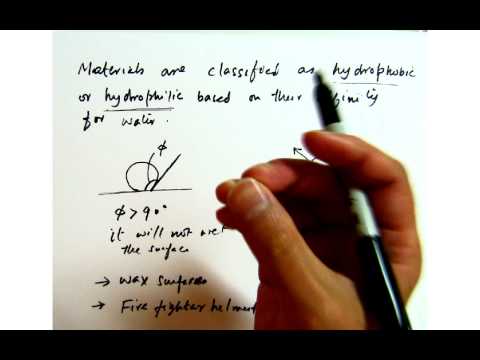 Materials are classified as hydrophobic
or hydrophilic based on their
for water.
ϕ
ϕ > 90°
it will not wet
the surface
→ wax surfaces
→ Fire fighter helmet